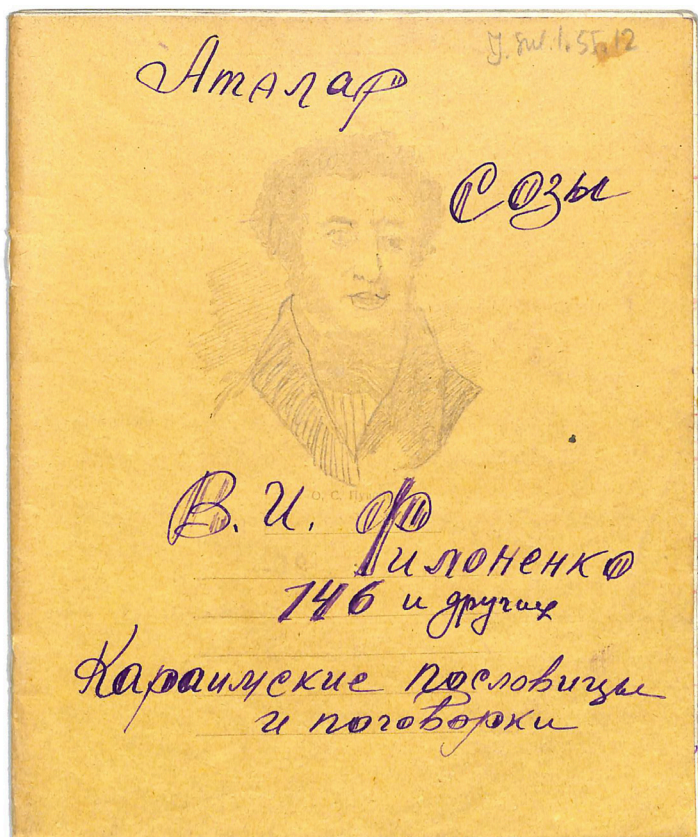 J. Sul. 1.55.12
Аталар
Созы
О. С. Пу
В. И. Филоненко
146 и других
Караимские пословицы
и поговорки